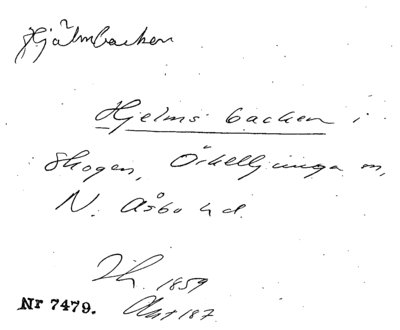 Hjälmbacken
Hjelms backen i
skogen, Örkelljunga sn,
N. Åsbo hd.
1859
Nr 7479. Akt 187